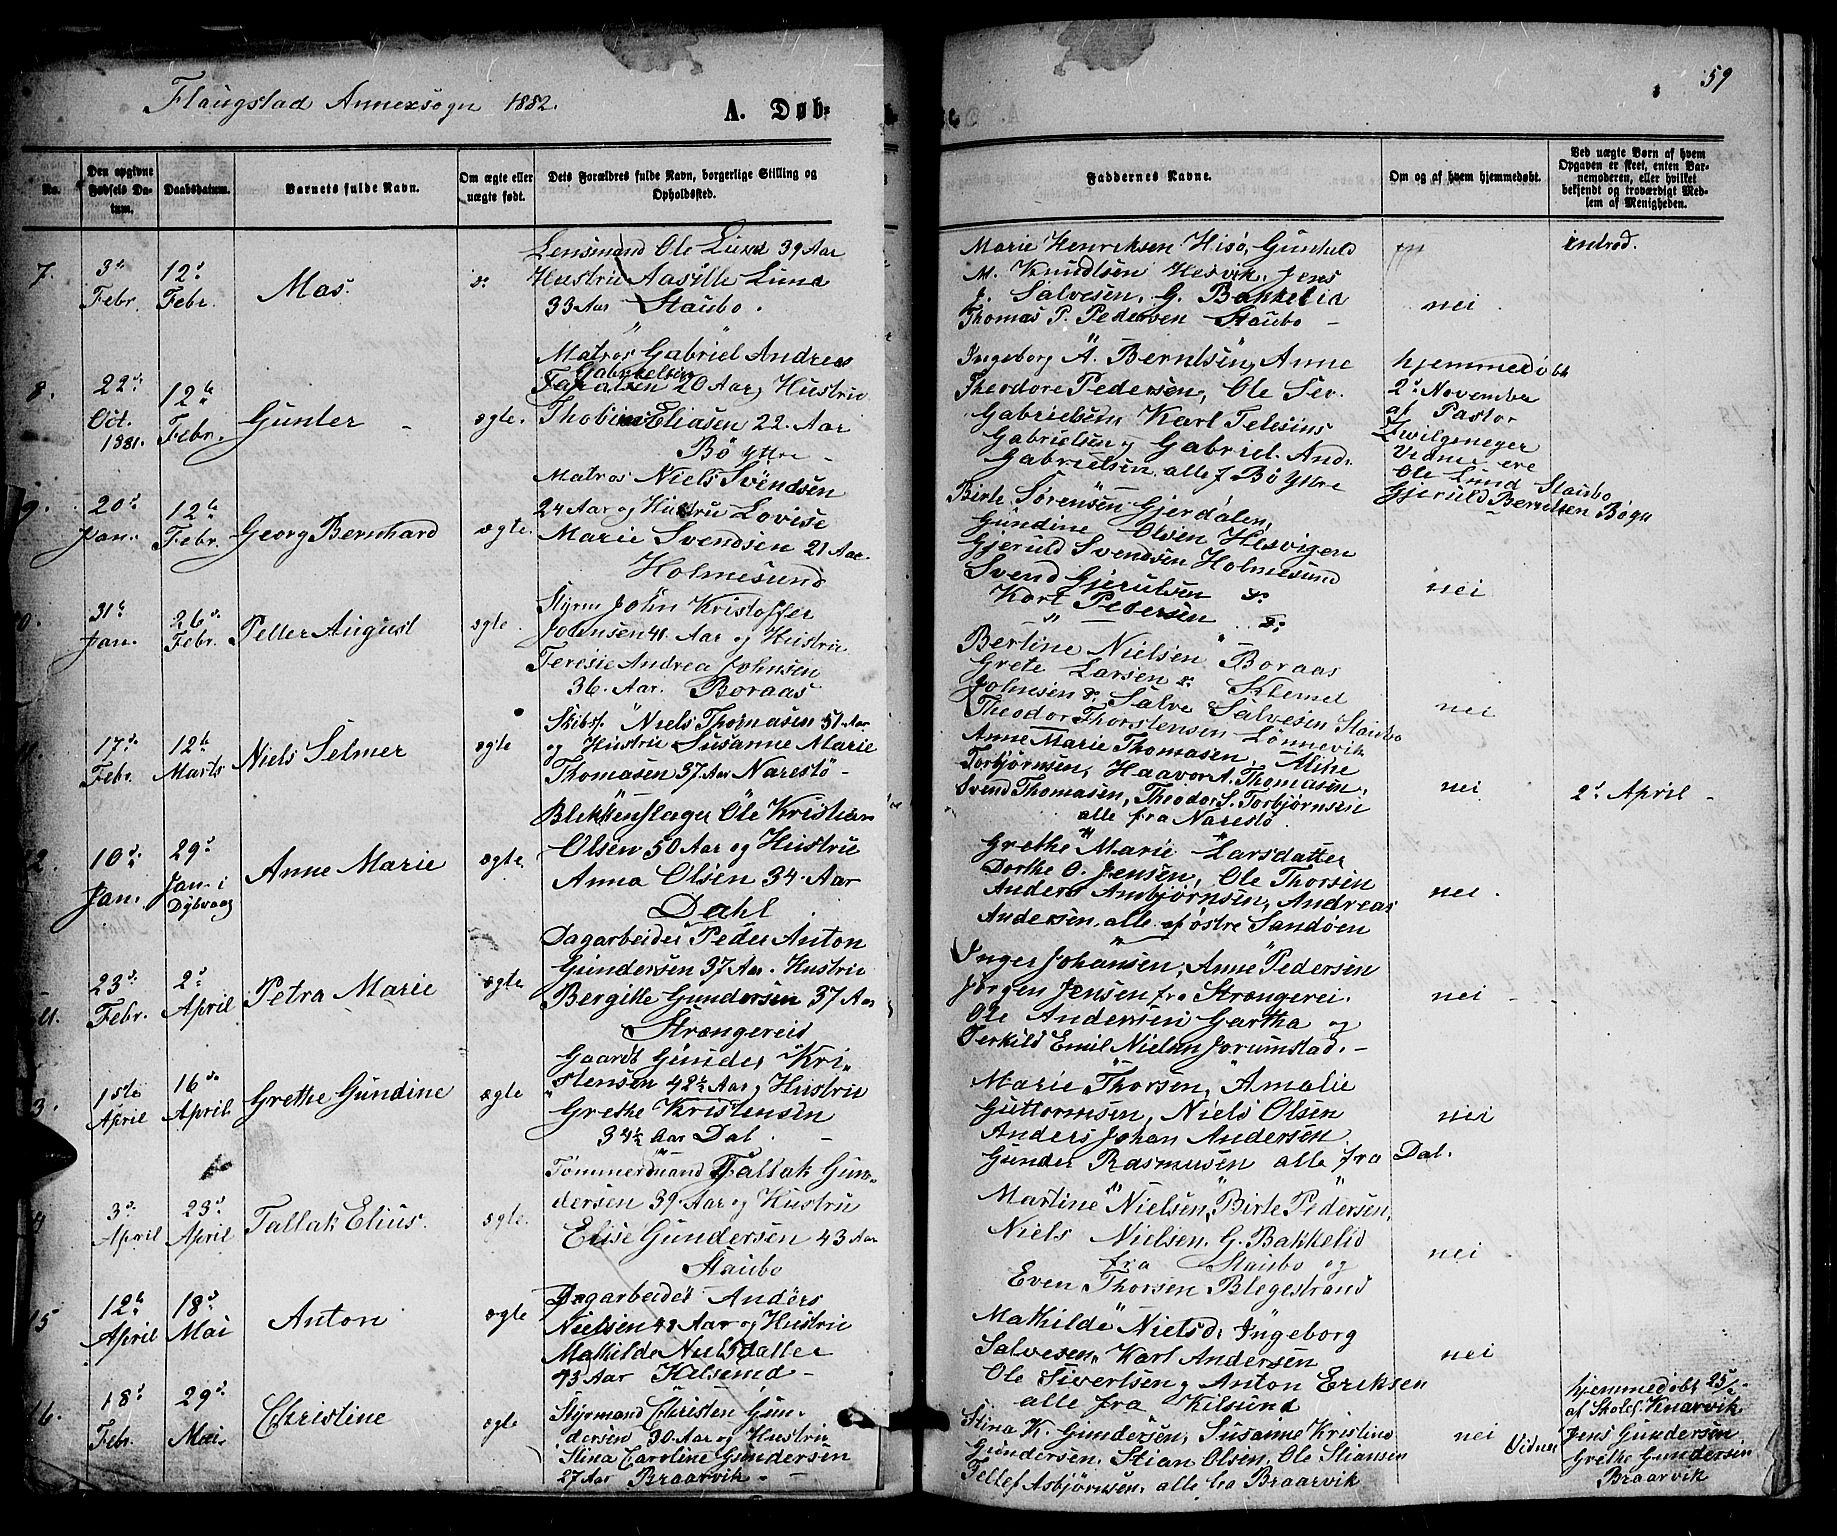 Flaugstad Annexsogn 1882.
A. Døb-
59
No.
Den opgivne Fødsels Da-tum.
Daabsdatum.
Barnets fulde Navn.
Om ægte eller uægte født.
Dets Forældres fulde Navn, borgerlige Stilling og Opholdssted.
Faddernes Navne.
Om og af hvem hjemmedøbt.
Ved uægte Børn af hvem Opgaven er skeet, enten Bar-nemoderen, eller hvilket bekjendt og troværdigt Med-lem af Menigheden.
7.
3die Febr.
12te Febr.
Mas.
Lensmand Ole Lund 39 Aar
Hustru Aasille Lund
33 Aar Staubo.
Marie Henriksen Hisø, Gunhild
M. Knudtsen Hesvik, Jens
J. Salvesen, G. Bakkelid
Thomas P. Pedersen Staubo
nei
introd.
8.
22de Oct. 1881.
12te Febr.
Gunter
ægte.
Matros Gabriel Andreas
Gabrielsen
20 Aar, Hustru
Thobine Eliasen 22. Aar
Bö Yttre
Ingeborg A. Berntsen, Anne
Theodore Pedersen, Ole Sev.
Gabrielsen, Karl Telesius
Gabrielsen og Gabriel And.
Gabrielsen alle f Bø Yttre
hjemmedøbt
2d November
af Pastor
Zwilgmeyer
Vidner ere
Ole Lund Staubo
Gjeruld Berntsen Bøyu
9.
20de Jan.
12te Febr.
Georg Bernhard
ægte.
Matros Niels Svendsen
24 Aar og Hustru Lovise
Marie Svendsen 21 Aar.
Holmesund
Birte Sørensen Gjerdalen,
Gundine Olsen Hesvigen
Gjeruld Svendsen Holmesund
Svend Gjerulsen do
Karl Pedersen do
nei
10.
31te Jan.
26de Febr.
Petter August
ægte.
Styrm John Kristoffer
Johnsen 41. Aar og Hustru
Teresie Andrea Johnsen
36. Aar. Boraas
Bertine Nielsen Boraas
Grete Larsen do Klemet
Johnsen do Salve Salvesen Staubo
Theodor Thorstensen Lønnevik
nei
11.
17de Febr.
12te Marts
Niels Selmer
ægte
Skibsf. Niels Thomasen 51 Aar
og Hustru Susanne Marie
Thomasen 37 Aar Narestö
Anne Marie Thomasen,
Torbjørnsen, Haavor A. Thomasen,
Svend Thomasen, Theodor S. Torbjørnsen
alle fra Narestø
nei
2d April
12.
10de Jan.
29de Jan. i Dybvaag
Anne Marie
ægte
Blikkenslager Ole Kristian
Olsen 50 Aar og Hustru
Anna Olsen 34 Aar
Dahl
Grethe Marie Larsdatter
Dorthe O. Jensen, Ole Thorsen
Anders Ambjørnsen, Andreas
Andersen, alle af østre Sandøen
nei
23de Febr.
2d April
Petra Marie
ægte
Dagarbeider Peder Anton
Gundersen 37 Aar. Hustru
Bergitte Gundersen 37 Aar
Strængereid
Inger Johansen, Anne Pedersen
Jørgen Jensen fra Strængerei.
Ole Andersen Gartha og
Terkild Emil Nielsen Jorumstad.
nei
13.
1ste April
16de April
Grethe Gundine
ægte
Gaardb Gunder Kri-
stensen 42½ Aar og Hustru
Grethe Kristensen
34½ Aar Dal.
Marie Thorsen, Amalie
Guttormsen, Niels Olsen
Anders Johan Andersen
Gunder Rasmusen alle fra Dal.
nei
14
3de April
23de April
Tallak Elius.
ægte.
Tømmermand Tallak Gun-
dersen 39 Aar og Hustru
Elise Gundersen 43 Aar
Staubo
Martine Nielsen, Birte Pedersen,
Niels Nielsen, G. Bakkelid
fra Staubo og
Even Thorsen Blegestrand
nei
15
12te April
18de Mai
Anton
ægte
Dagarbeider Anders
Nielsen 48 Aar og Hustru
Mathilde Nielsdatter
43 Aar Kilsund
Mathilde Nielsd, Ingeborg
Salvesen, Karl Andersen
Ole Sivertsen og Anton Eriksen
alle fra Kilsund
nei
16.
18de Febr.
29de Mai
Christine
ægte
Styrmand Christen Gun-
dersen 30 Aar og Hustru
Stina Caroline Gundersen
27 Aar Braarvik
Stina K. Gundersen, Susanne Kristine
Gundersen, Stian Olsen, Ole Stiansen
Tellef Asbjørnsen, alle fra Braarvik
nei
hjemmedøbt 25/2
af Skolel. Knarvik
Vidner Jens Gundersen
Grethe Gundersen
Braarvik